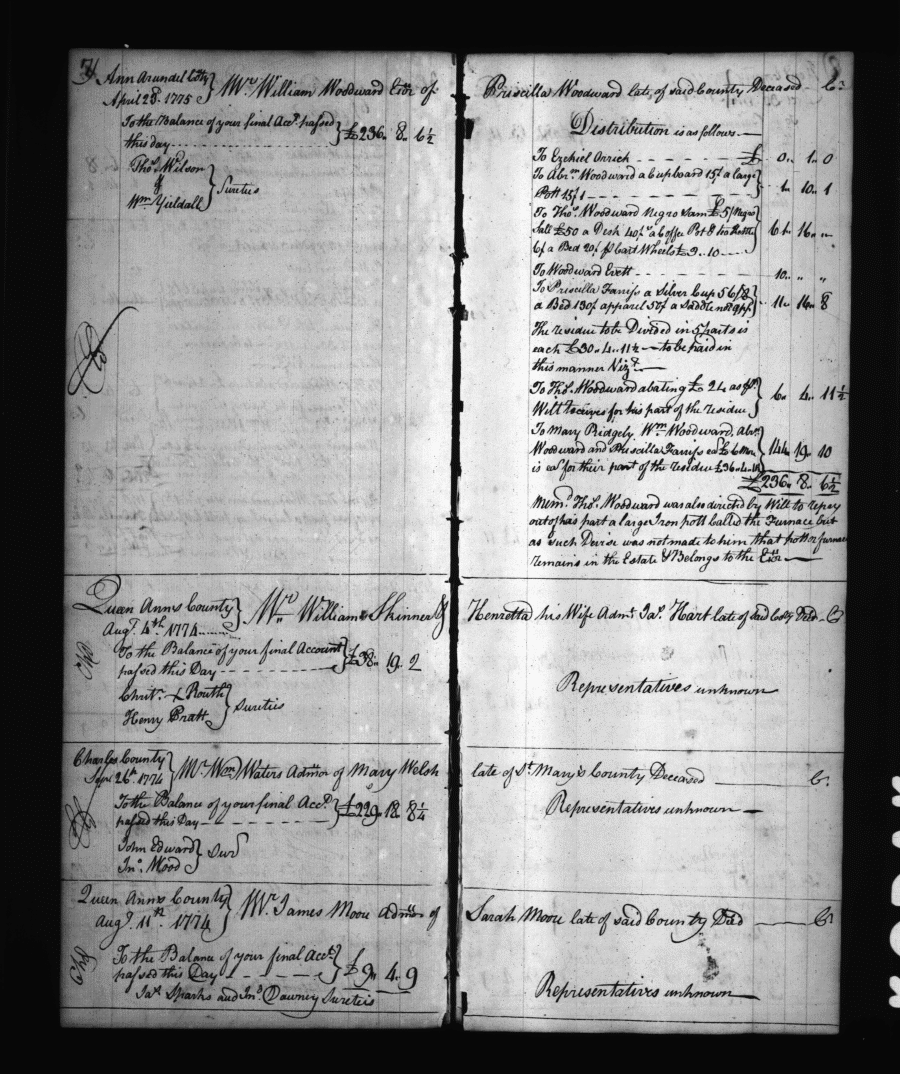 Ann Arundel Cty
April 28th 1775
Mr. William Woodward Exr of
Priscilla Woodward late, of said County Deceased Cr
To the Balance of your final Acct. passed
this day
£236.. 8.. 6½
Thos. Wilson
&
Wm Yieldall
Sureties
Distribution is as follows
To Ezekiel Orrick £ 0.. 1.. 0
To Abrm. Woodward a Cupboard 15/ a large
Pott 15/1 1.. 10.. 1
To Thos. Woodward Negro Sam £5/ Negro
Sale £50 a Desk 40/ a Coffee Pot 8
6/ a Bed 20/ pr Cart Wheels £3..10
To Woodward Evett 10.. " "
To Priscilla Farriss a Silver Cup 56/8
a Bed 130/ apparel 50/ a Saddle 11.. 16.. 8
The residue to be Divided in 5 parts is
each £30.. 4.. 11½ to be paid in
this manner Vizt.
To Thos. Woodward abating £24 as pr.
Will receives for his part of the residue 6.. 4.. 11½
To Mary Ridgely Wm. Woodward, Abrm.
Woodward and Priscilla Farriss ea £6 More
is ea for their part of the residue £36..4.. 144.. 19.. 10
£236.. 8.. 6½
Memd. Thos. Woodward was also directed by Will to repay
out of his part a large Iron pott called the Furnace but
as such Devise was not made to him that pott or furnace
remains in the Estate & Belongs to the Exr
Queen Anns County
Augt. 4th. 1774
Mr. William Skinner &
Henretta his Wife Adms. Jas. Hart late of said Coty Decd. Cr
To the Balance of your final Account
passed this Day
£38.. 19.. 2
Christr. + Routh
Henry Pratt
Sureties
Representatives unknown
Charles County
Sept 26th. 1774
Mr. Wm Waters Admor of Mary Welsh
late of St. Mary's County Deceased Cr.
To the Balance of your final Acct.
passed this Day
£229.. 18.. 8¼
John Edward
Jno. Mood
Sur
Representatives unknown
Queen Anns County
Augt. 11th. 1774
Mr. James Moore Admor of
Sarah Moore late of said County Decd Cr
To the Balance of your final Acct.
passed this Day
£9.. 4.. 9
Jas. Sparks and Jno. Downey Sureties
Representatives unknown